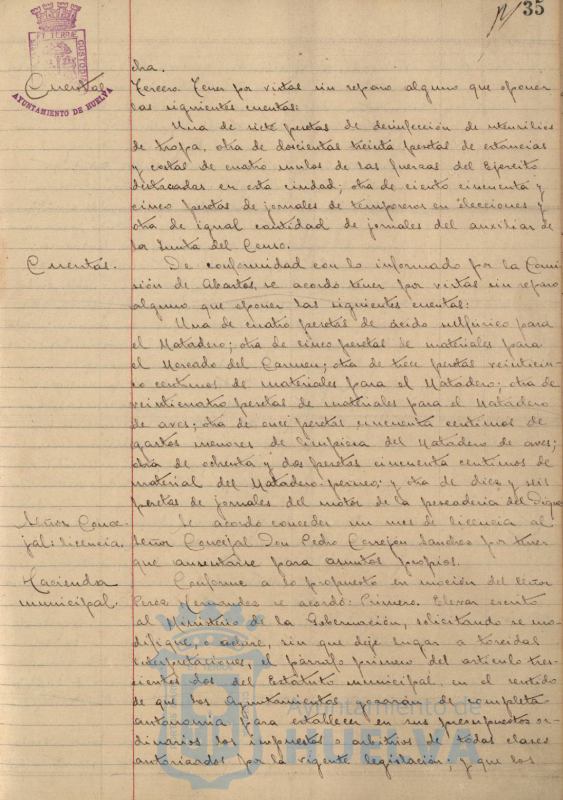 35
ET TERRAE CUSTODIA
AYUNTAMIENTO DE HUELVA
cha.
Cuentas Tercero. Tener por vistas sin reparo alguno que oponer
las siguientes cuentas:
Una de siete pesetas de desinfección de utensilios
de tropa, otra de doscientas treinta pesetas de estancias
y costas de cuatro mulos de las fuerzas del Ejercito
destacadas en esta ciudad; otra de ciento cincuenta y
cinco pesetas de jornales de temporeros en elecciones y
otra de igual cantidad de jornales del auxiliar de
la Junta del Censo.
Cuentas. De conformidad con lo informado por la Comi
sión de Abastos, se acordó tener por vistas sin reparo
alguno que oponer las siguientes cuentas:
Una de cuatro pesetas de ácido sulfúrico para
el Matadero; otra de cinco pesetas de materiales para
el Mercado del Carmen; otra de trece pesetas veinticin-
co centimos de materiales para el Matadero; otra de
veinticuatro pesetas de materiales para el Matadero
de aves; otra de once pesetas cincuenta centimos de
gastos menores de limpieza del Matadero de aves;
otra de ochenta y dos pesetas cincuenta centimos de
material del Matadero; y otra de diez y seis
pesetas de jornales del motor de la pescaderia del Dique
Señor Conce-
jal: licencia. Se acordó conceder un mes de licencia al
Señor Concejal Don Pedro Cerrejon Sanchez por tener
que ausentarse para asuntos propios.
Hacienda
municipal. Conforme a lo propuesto en moción del Señor
Perez se acordó: Primero. Elevar escrito
al Ministerio de la Gobernación, solicitando se mo-
difique, o aclare, sin que deje lugar a torcidas
interpretaciones, el párrafo primero del articulo tres-
cientos dos del Estatuto municipal, en el sentido
de que los Ayuntamientos gozaran de completa
autonomia para establecer en sus presupuestos or-
dinarios los impuestos y arbitrios de todas clases
autorizados por la vigente legislación; y que los
Ayuntamiento de
HUELVA